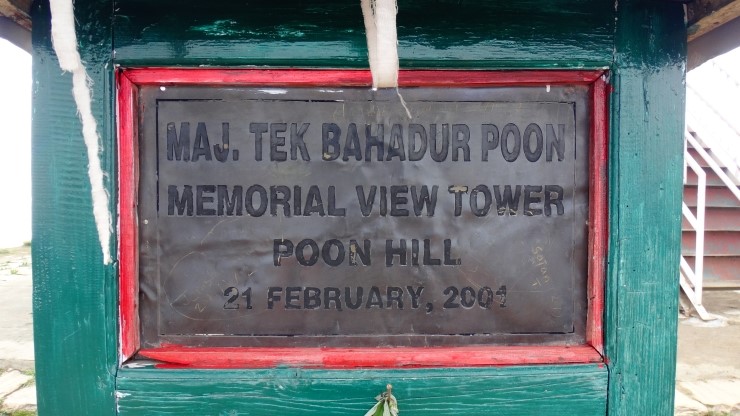 MAJ. TEK BAHADUR POON
MEMORIAL VIEW TOWER
POON HILL
21 FEBRUARY, 2001